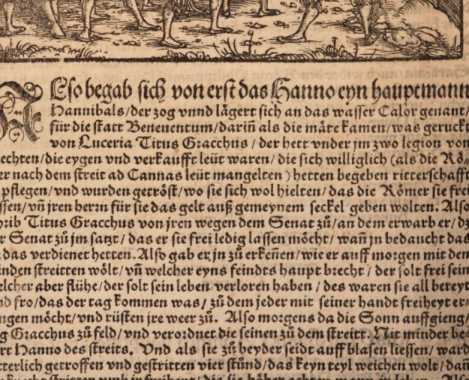 Also begab sich von erst das Hanno eyn hauptmann
Hannibals/der zog vnnd lägert sich an das wasser Calor genant/
für die statt Beneuentum/dariñ als die märe kamen/was geruckt
von Luceria Titus Gracchus/der hett vnder jm zwo legion von
echten/die eygen vnd verkaufft leüt waren/die sich williglich (als die Rö
er nach dem streit ad Cannas leüt mangelten) hetten begeben ritterschafft
pflegen/vnd wurden getröst/wo sie sich wol hielten/das die Römer sie frei
ssen/vñ jren herrn für sie das gelt auß gemeynem seckel geben wolten. Also
hrib Titus Gracchus von jren wegen dem Senat zů/an dem erwarb er/dz
r Senat zů jm satzt/das er sie frei ledig lassen möcht/wañ jn bedaucht das
as verdienet hetten. Also gab er jn zů erkeñen/wie er auff morgen mit den
inden streitten wölt/vñ welcher eyns feindts haupt brecht/der solt frei sein
elcher aber flühe/der solt sein leben verloren haben/des waren sie all bereyt
nd fro/das der tag kommen was/zů dem jeder mit seiner handt freiheyt er
ngen möcht/vnd rüsten jre weer zů. Also morgens da die Sonn auffgieng/
g Gracchus zů feld/vnd verordnet die seinen zů dem streitt. Nit minder be
rt Hanno des streits. Vnd als sie zů beyder seidt auff blasen liessen/ward
tterlich getroffen vnd gestritten vier stund/das keyn teyl weichen wolt/da